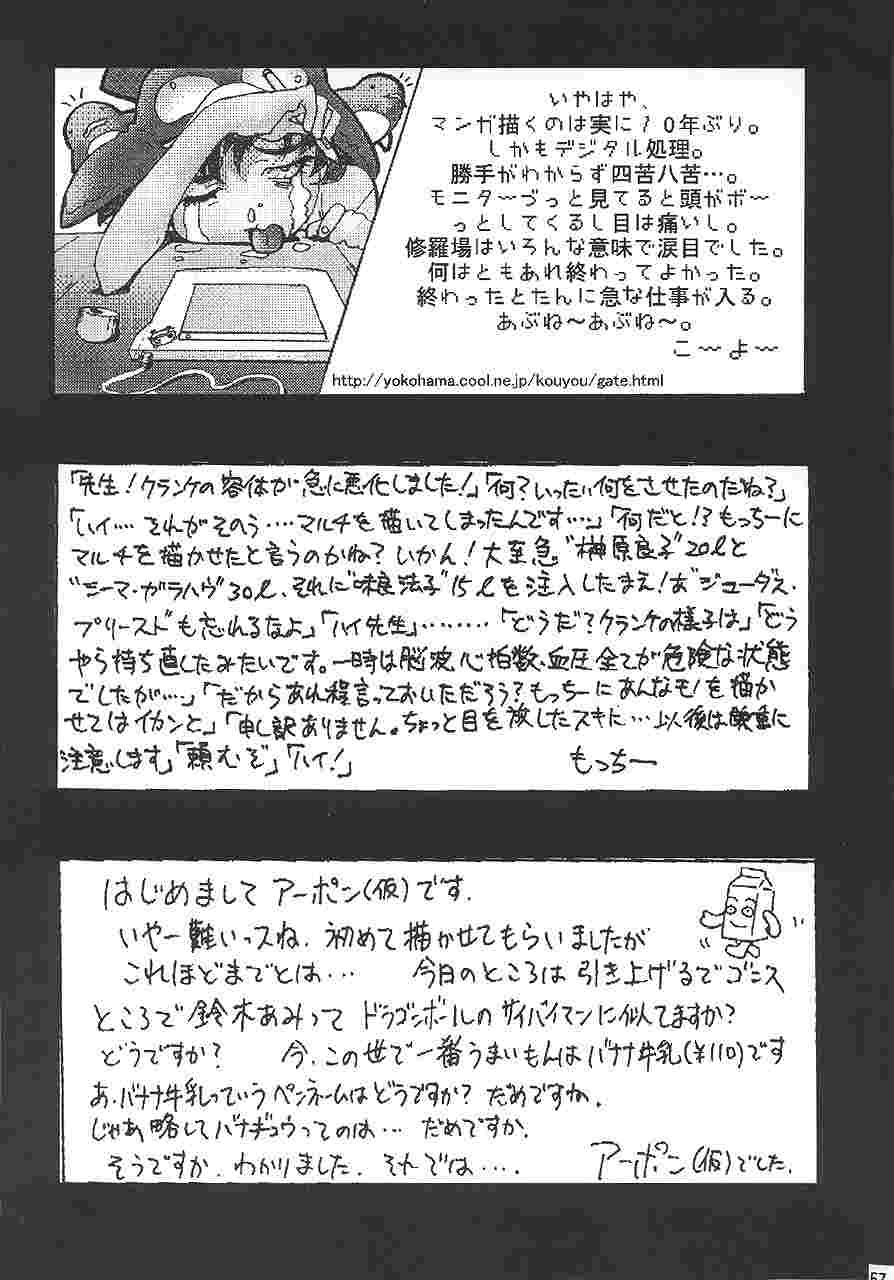 いやはや、
マンガ描くのは実に10年ぶり。
しかもデジタル処理。
勝手がわからず四苦八苦…。
モニターづっと見てると頭がボ〜
っとしてくるし目は痛いし。
修羅場はいろんな意味で涙目でした。
何はともあれ終わってよかった。
終わったとたんに急な仕事が入る。
あぶね〜あぶね〜。
こ〜よ〜
http://yokohama.cool.ne.jp/kouyou/gate.html
「先生!クランケの容体が急に悪化しました!」「何?いったい何をさせたのだね?」
「ハイ…. それがそのう‥‥マルチを描いてしまったんです…」「何だと!?もっちーに
マルチを描かせたと言うのかね?いかん!大至急"榊原良子"20lと
"ニーマ・ガラハヴ"30l、それに"味良法子"15lを注入したまえ!あ"ジューダス・
プリースト"も忘れるなよ」「ハイ先生」………「どうだ?クランケの様子は」「どう
やら持ち直したみたいです。一時は脳波、心拍数、血圧全てが危険な状態
でしたが…」「だからあれ程言っておいただろう?もっちーにあんなモノを描か
せてはイカンと」「申し訳ありません。ちょっと目を放したスキに…以後は慎重に
注意します」「頼むぞ」「ハイ!」
もっちー
はじめまして アーポン(仮)です.
いやー難いっスね. 初めて描かせてもらいましたが
これほどまでとは… 今日のところは引き上げるでゴンス
ところで鈴木あみって ドラゴンボールのサイバイマンに似てますか?
どうですか? 今、この世で一番うまいもんはバナナ牛乳(¥110)です
あ、バナナ牛乳っていうペンネームはどうですか? だめですね.
じゃあ略してバナギュウってのは… だめですか.
そうですか. わかりました. それでは….
アーポン(仮)でした.